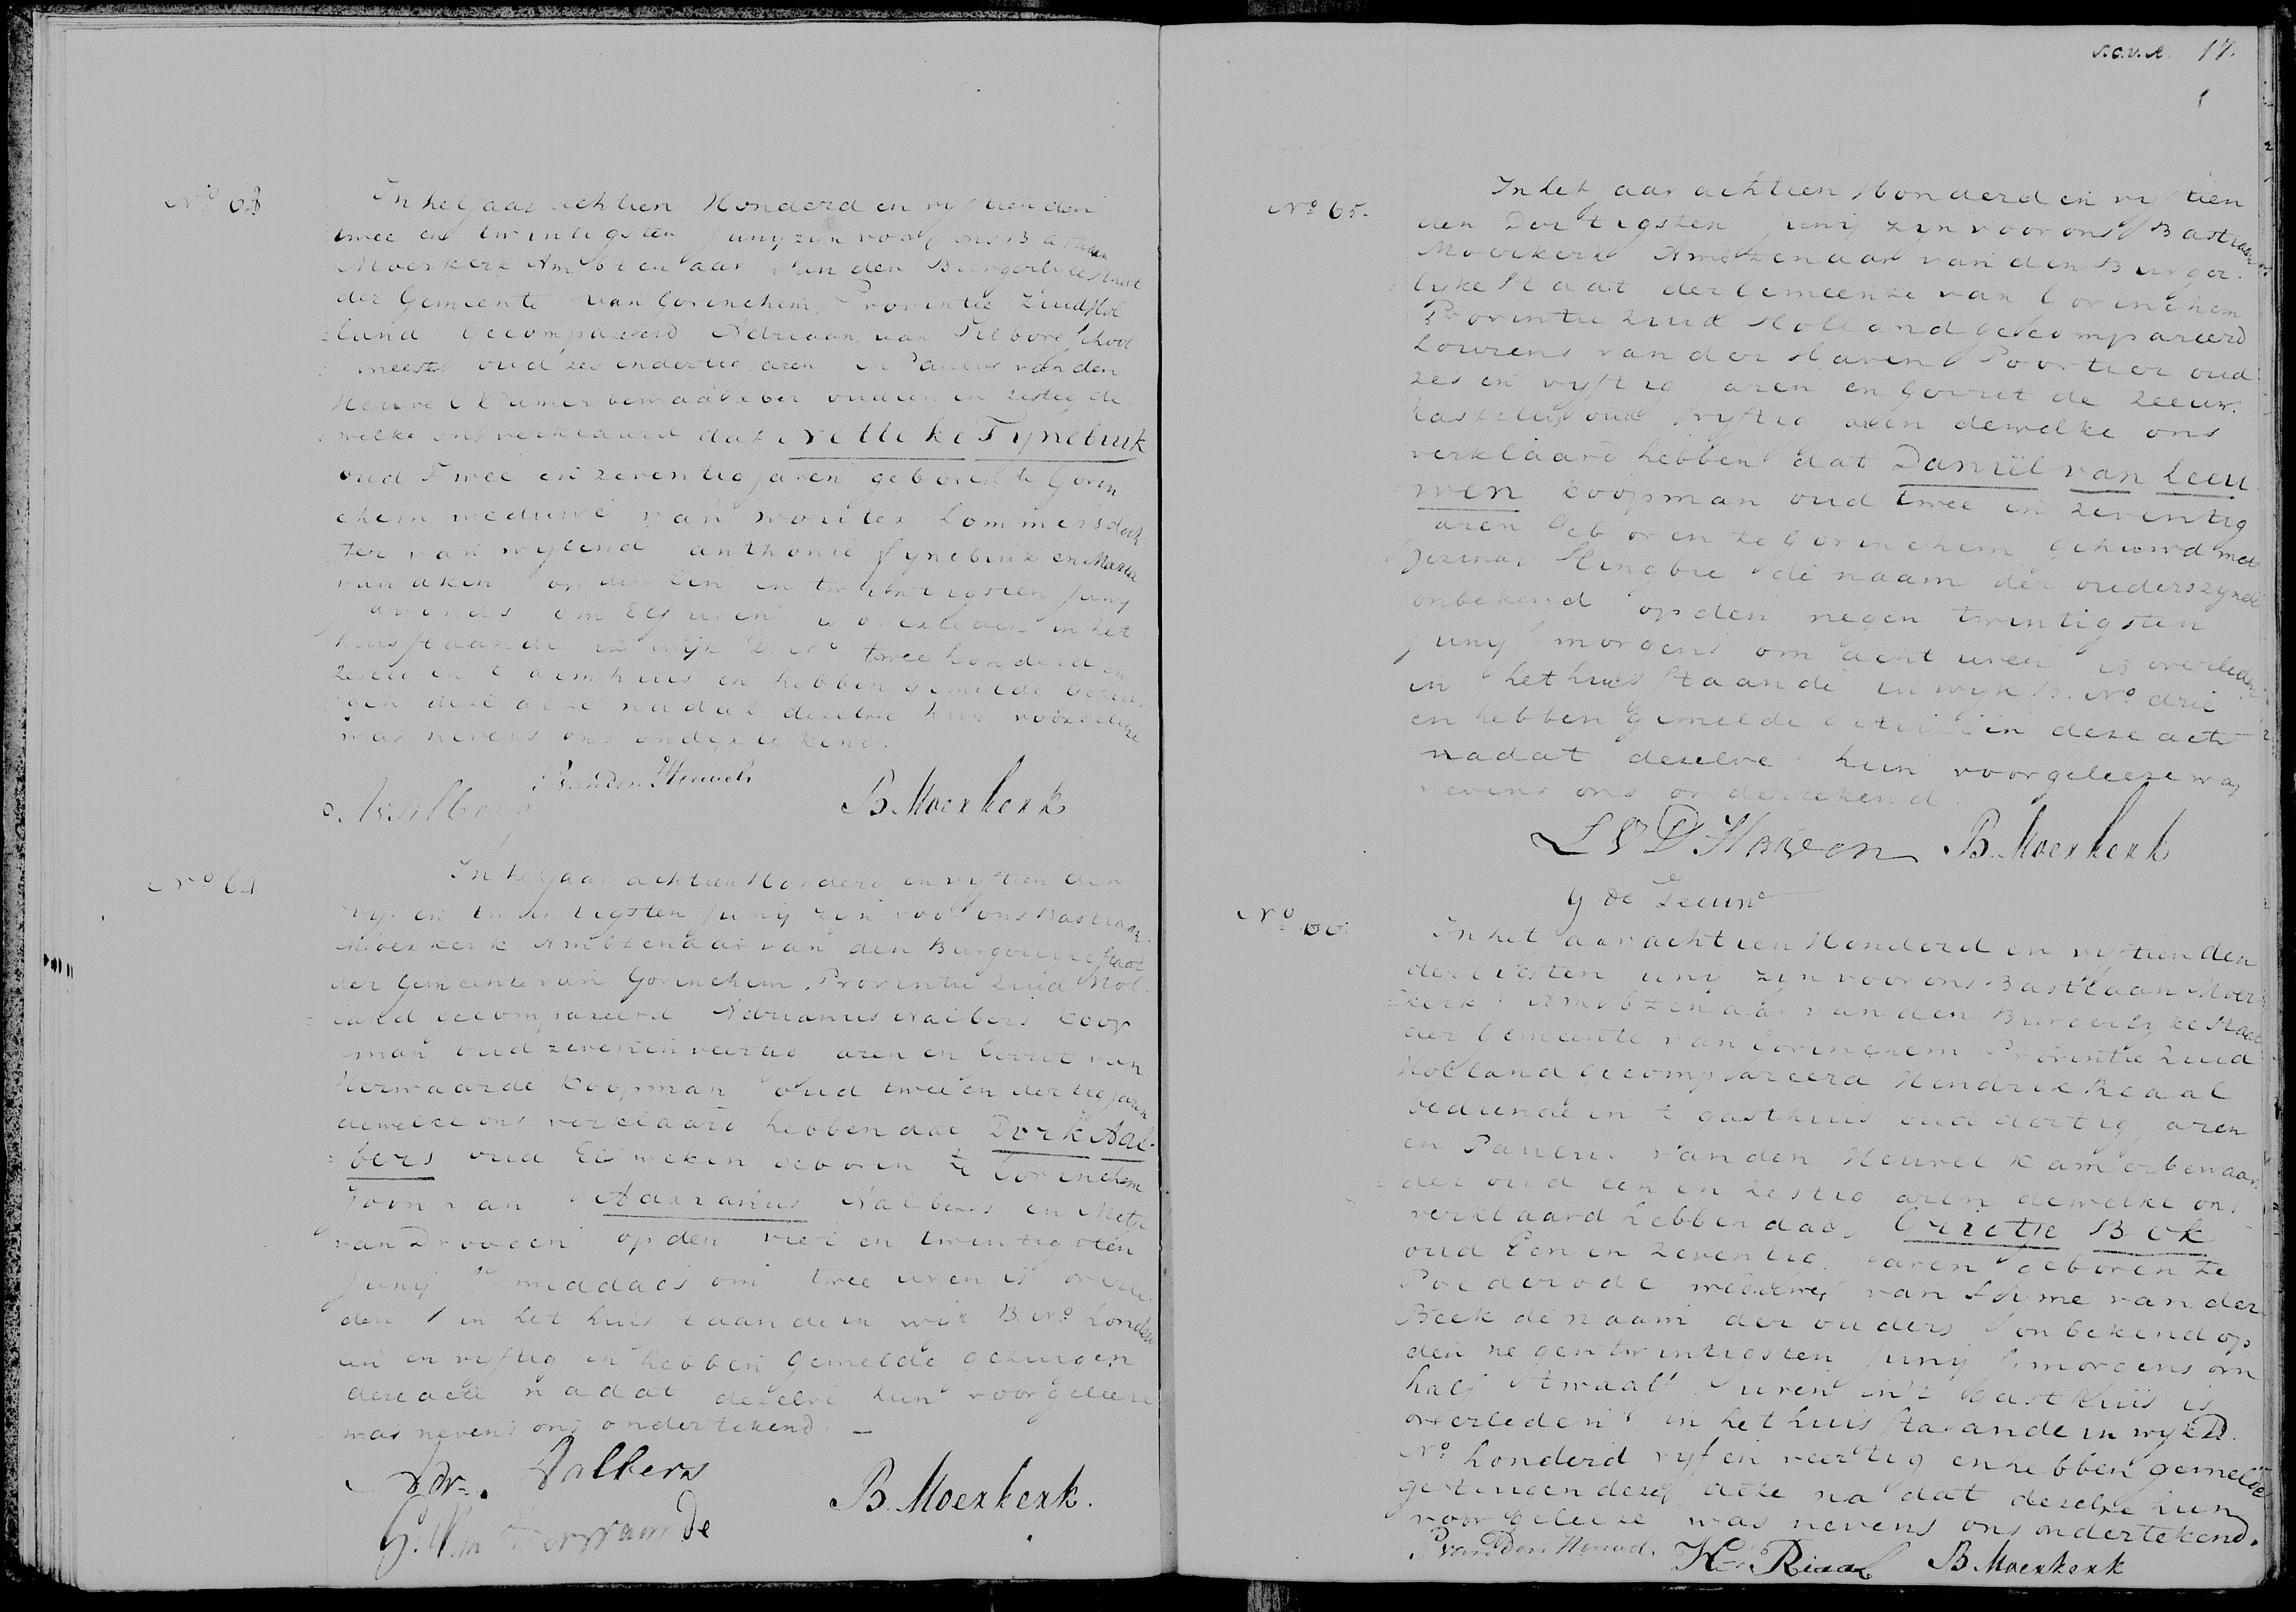 No 63
In het jaar achtien Honderd en vyftien den
twee en twintigsten Juny zyn voor ons Bastiaan
Moerkerk Ambtenaar van den Burgerlyke Staat
der Gemeente van Gorinchem, Provintie Zuid Hol
land gecompareerd Adriaan van Tilborg School
meester oud zes en dertig Jaren en Paulus van den
Heuvel Kamerbewaarder oud een en zestig de
welke ons verklaard dat Nelleke Fynebuik
oud Twee en zeventig jaren geboren te Gorin
chem weduwe van Wouter Lommers doch
ter van wylend anthonie fynebuik en Maria
van aken op den Een en twintigsten Juny
avonds om Elf uren is overleden in het
huis staande in wyk D. No twee honderd en
zestig in 't armhuis en hebben gemelde getui
gen deze acte nadat dezelve hun voorgeleze
was nevens ons ondertekend.
P van Den Heuvel
A v Tilborg B. Moerkerk
No 64
In het jaar achtien Honderd en vyftien den
vyf en twintigsten Juny zyn voor ons Bastiaan
Moerkerk Ambtenaar van den Burgerlyke staat
der Gemeente van Gorinchem, Provintie Zuid Hol
land gecompareerd Adrianus Aalbers Koop
man oud zeven en veertig Jaren en Gerrit van
Herwaarde Koopman oud twee en dertig jaren
dewelke ons verklaard hebben dat Dirk Aal
bers oud Elf weken geboren te Gorinchem
Zoon van Adrianus Aalbers en Metje
van Droogen op den vier en twintigsten
Juny 's middags om twee uren is overle
den in het huis staande in wyk B. No. honderd
een en vyftig en hebben Gemelde getuigen
deze acte nadat dezelve hun voorgeleze
was nevens ons ondertekend.
Adr. Aalbers
G. Van Herwaarde B. Moerkerk.
17.
No 65.
In het Jaar achtien Honderd en vyftien
den Dertigsten Juny zyn voor ons Bastiaan
Moerkerk Ambtenaar van den Burger
lyke Staat der Gemeente van Gorinchem
Provintie Zuid Holland gecompareerd
Lourens van der Haven Poortier oud
zes en vyftig Jaren en Gerrit de Leeuw
Kastelein oud vyftig jaren dewelke ons
verklaard hebben dat Daniël van Leeu
wen Koopman oud twee en zeventig
Jaren Geboren te Gorinchem Gehuwd met
de naam der ouders zynde
onbekend op den negen twintigsten
Juny 's morgens om acht uren is overleden
in het huis staande in wyk B. No drie
en hebben Gemelde getuigen deze acte
nadat dezelve hun voorgeleeze was
nevens ons ondertekend
L V D Haven B. Moerkerk
G de Leeuw
No 66.
In het Jaar achtien Honderd en vyftien den
dertigsten Juny zyn voor ons Bastiaan Moer
kerk Ambtenaar van den Burgerlyke Staat
der Gemeente van Gorinchem Provintie Zuid
Holland gecompareerd Hendrik Reaal
bediende in 't gasthuis oud dertig Jaren
en Paulus van den Heuvel Kamerbewaar
der oud een en zestig Jaren dewelke ons
verklaard hebben dat Grietje Bok
oud Een en zeventig Jaren geboren te
Poederode weduwe van van der
Beek de naam der ouders onbekend op
den negentwintigsten Juny 's morgens om
half twaalf uren in 't Gasthuis is
overleden in het huis staande in wyk D.
No honderd vyf en veertig en hebben gemelde
getuigen deze acte na dat dezelve hun
voor geleeze was nevens ons ondertekend.
P van Den Heuvel. H Riaal B. Moerkerk